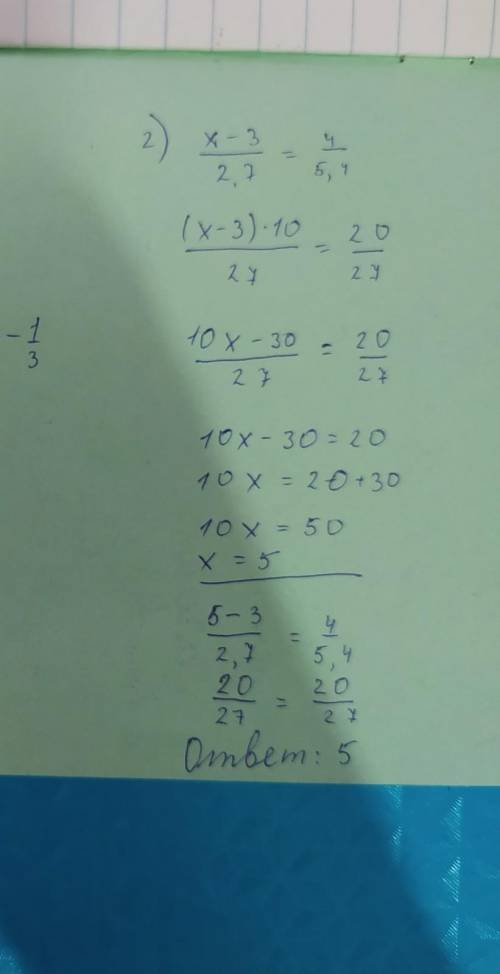 2) x - 3 / 2,7 = 4 / 5,4
(x - 3) · 10 / 27 = 20 / 27
- 1 / 3
10x - 30 / 27 = 20 / 27
10x - 30 = 20
10x = 20 + 30
10x = 50
x = 5
5 - 3 / 2,7 = 4 / 5,4
20 / 27 = 20 / 27
Ответ: 5